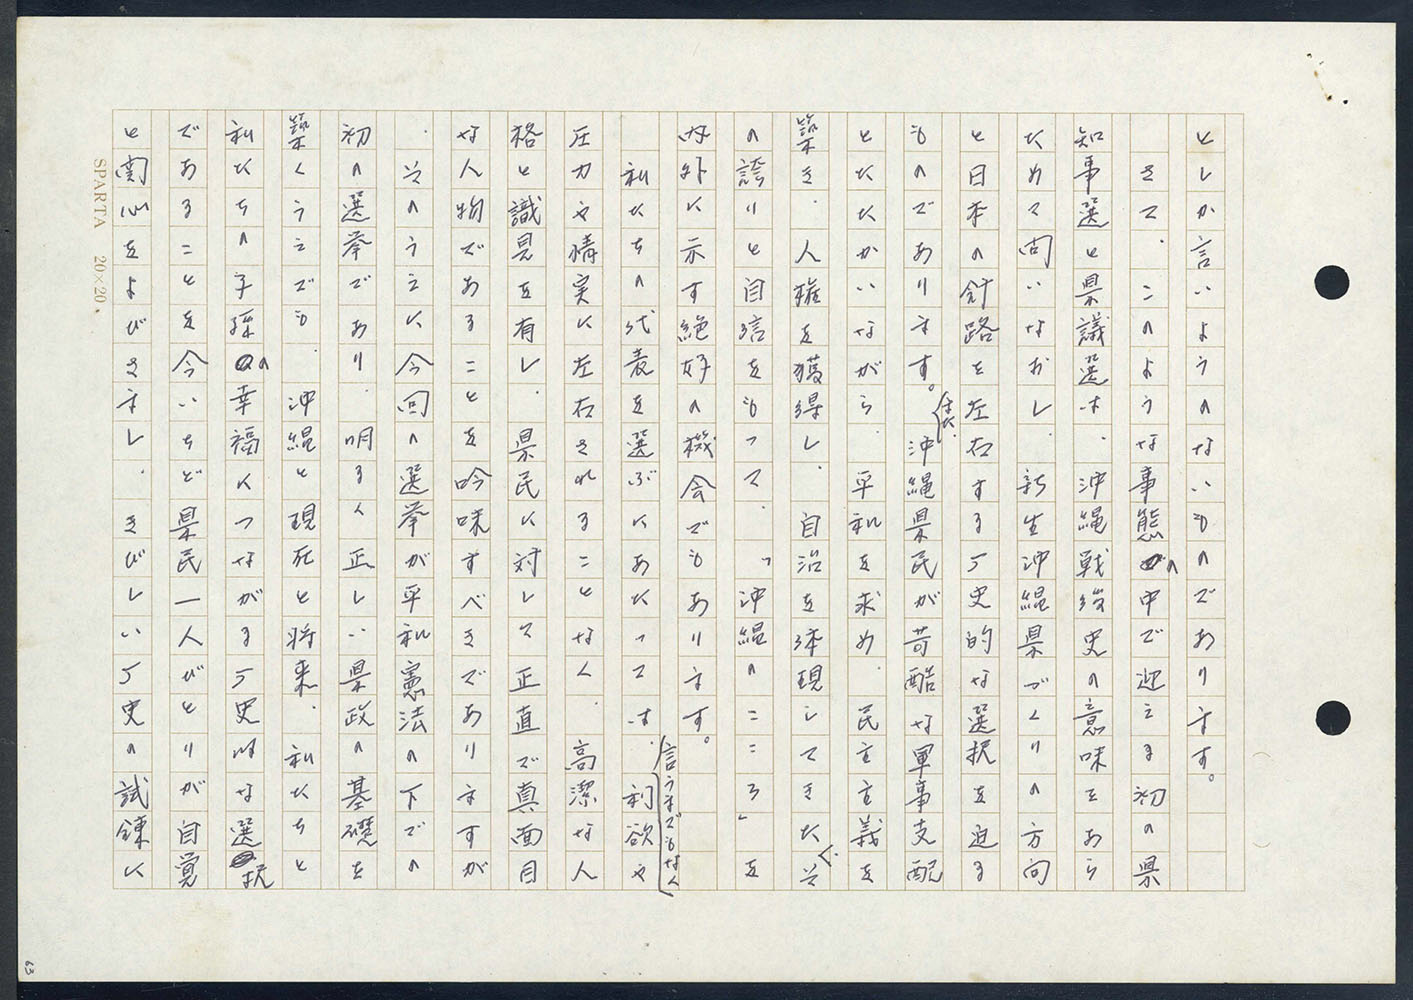 としか言いようのないものであります。
さて、このような事態の中で迎える初の県
知事選と県議選は、沖縄戦後史の意味をあら
ためて問いなおし、新生沖縄県づくりの方向
と日本の針路を左右する歴史的な選択を迫る
ものであります。また、沖縄県民が苛酷な軍事支配
とたたかいながら、平和を求め、民主主義を
築き、人権を獲得し、自治を体現してきたそ
の誇りと自信をもって、「沖縄のこころ」を
内外に示す絶好の機会でもあります。
私たちの代表を選ぶにあたっては、言うまでもなく利欲や
圧力や情実に左右されることなく、高潔な人
格と識見を有し、県民に対して正直で真面目
な人物であることを吟味すべきでありますが
、そのうえに今回の選挙が平和憲法の下での
初の選挙であり、明るく正しい県政の基礎を
築くうえでも、沖縄と現在と将来、私たちと
私たちの子孫の幸福につながる歴史的な選択
であることを今いちど県民一人びとりが自覚
と関心をよびさまし、きびしい歴史の試錬に
SPARTA 20×20
63